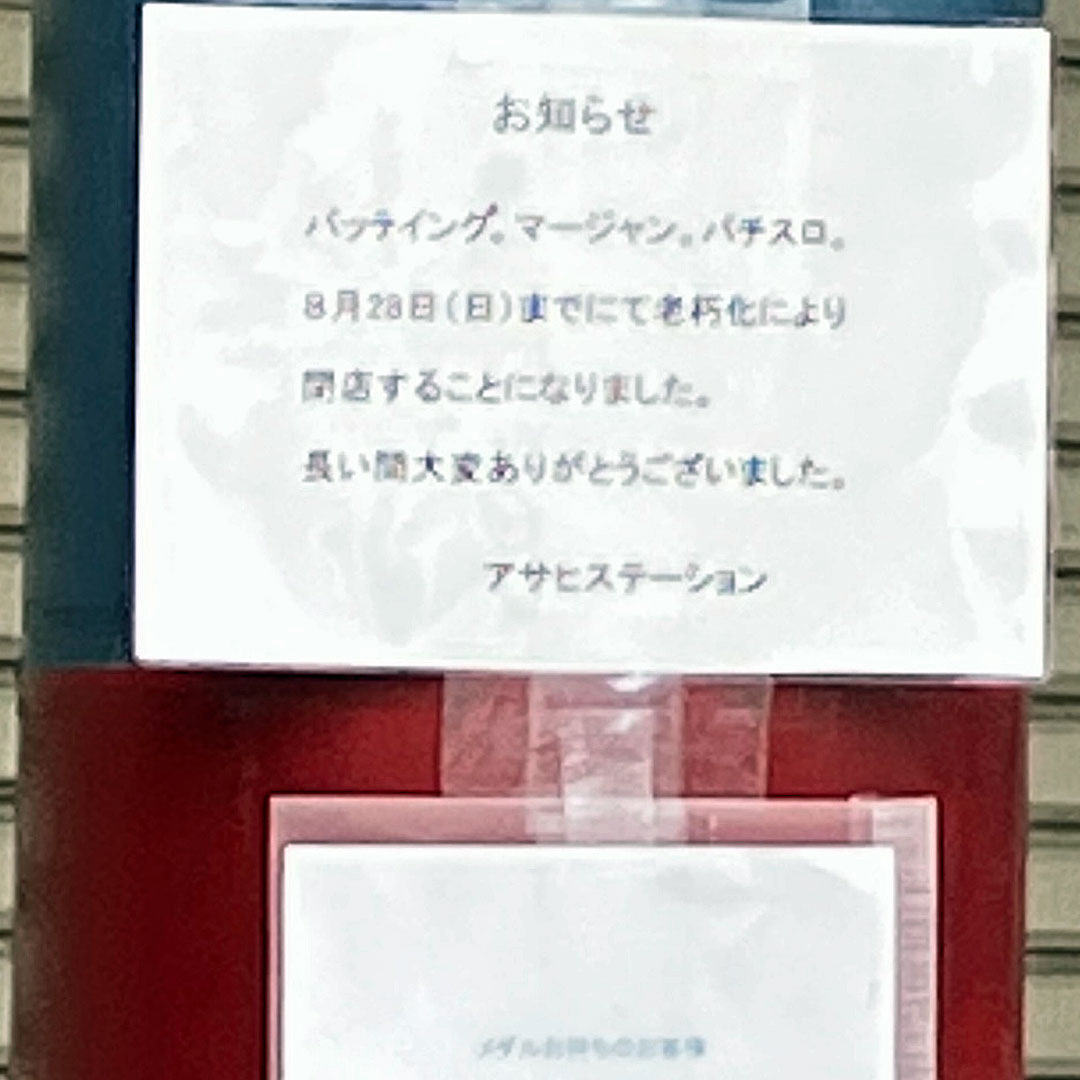 お知らせ
バッテイング。マージャン。パチスロ。
8月28日(日)までにて老朽化により
閉店することになりました。
長い間大変ありがとうございました。
アサヒステーション
メダルお持ちのお客様